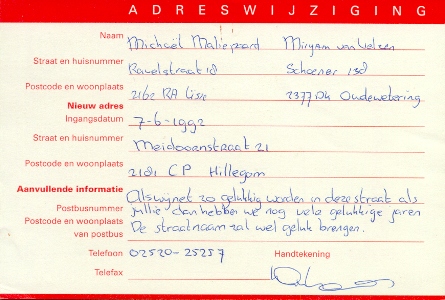 ADRESWIJZIGING
Naam Michaël Maliepaard Mirjam van Velzen
Straat en huisnummer Ravelstraat 18 Schoener 138
Postcode en woonplaats 2162 RA Lisse 2377 DK Oudewetering
Nieuw adres
Ingangsdatum 7-6-1992
Straat en huisnummer Meidoornstraat 21
Postcode en woonplaats 2181 CP Hillegom
Aanvullende informatie Als wij net zo gelukkig worden in deze straat als
Postbusnummer jullie dan hebben we nog vele gelukkige jaren
Postcode en woonplaats De straatnaam zal wel geluk brengen.
van postbus
Telefoon 02520-25257 Handtekening
Telefax